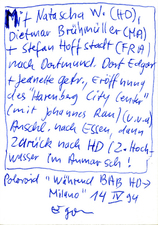 Mit Natascha W. (HD),
Dietmar Brühmüller (MA)
+ Stefan Hoffstadt (FRA)
nach Dortmund. Dort Edgar
+ Jeanette getr., Eröffnung
des "Harenberg City Center"
(mit Johannes Rau) (u.v.a.)
Anschl. nach Essen, dann
zurück nach HD (2. Hoch-
wasser im Anmarsch!
Polaroid "Während BAB HD→
Milano" 14 IV 94